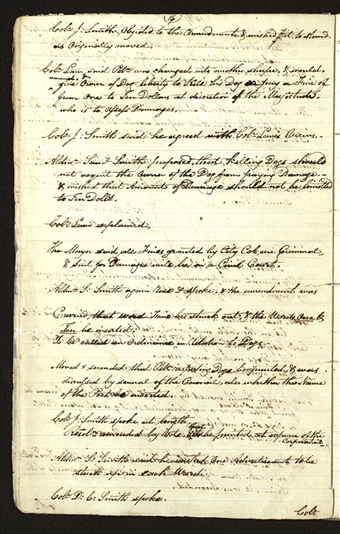 4
Colo J. Smith, objected to the Amendments & wished it to stand
as Originally moved.
Colo Law said Petn was changed into another shape, & would
give Owner of Dog liberty to Kill his Dog or pay a Fine of
from One to Ten Dollars at discretion of the Magistrate,
who is to assess Damages.
Colo J. Smith said he agreed with Colo Law's Views.
Alder Saml Smith proposed, that killing Dogs should
not acquit the Owner of the Dog from paying Damage
& wished that Amount of Damage should not be limited
to Ten Dolls.
Colo Law explained.
The Mayor said all Fines granted by City Col are Criminal,
& Suit for Damages will lie in a Civil Court.
Alder S. Smith again rose & spoke, & the amendment was
Carried, that word Fine be struck out, & the Words One to
Ten be inserted;
To be called an Ordinance in relation to Dogs.
Moved & seconded, that respecting Dogs be printed, & was
discussed by several of the Council, also whether the Name
of the be inserted.
Colo J. Smith spoke at length
Resolo amended by to be printed at expense of the
Corporation
Alder S. Smith said he wished One Advertisement to be
stuck up in each Ward.
Colo D. C. Smith spoke.
Colo